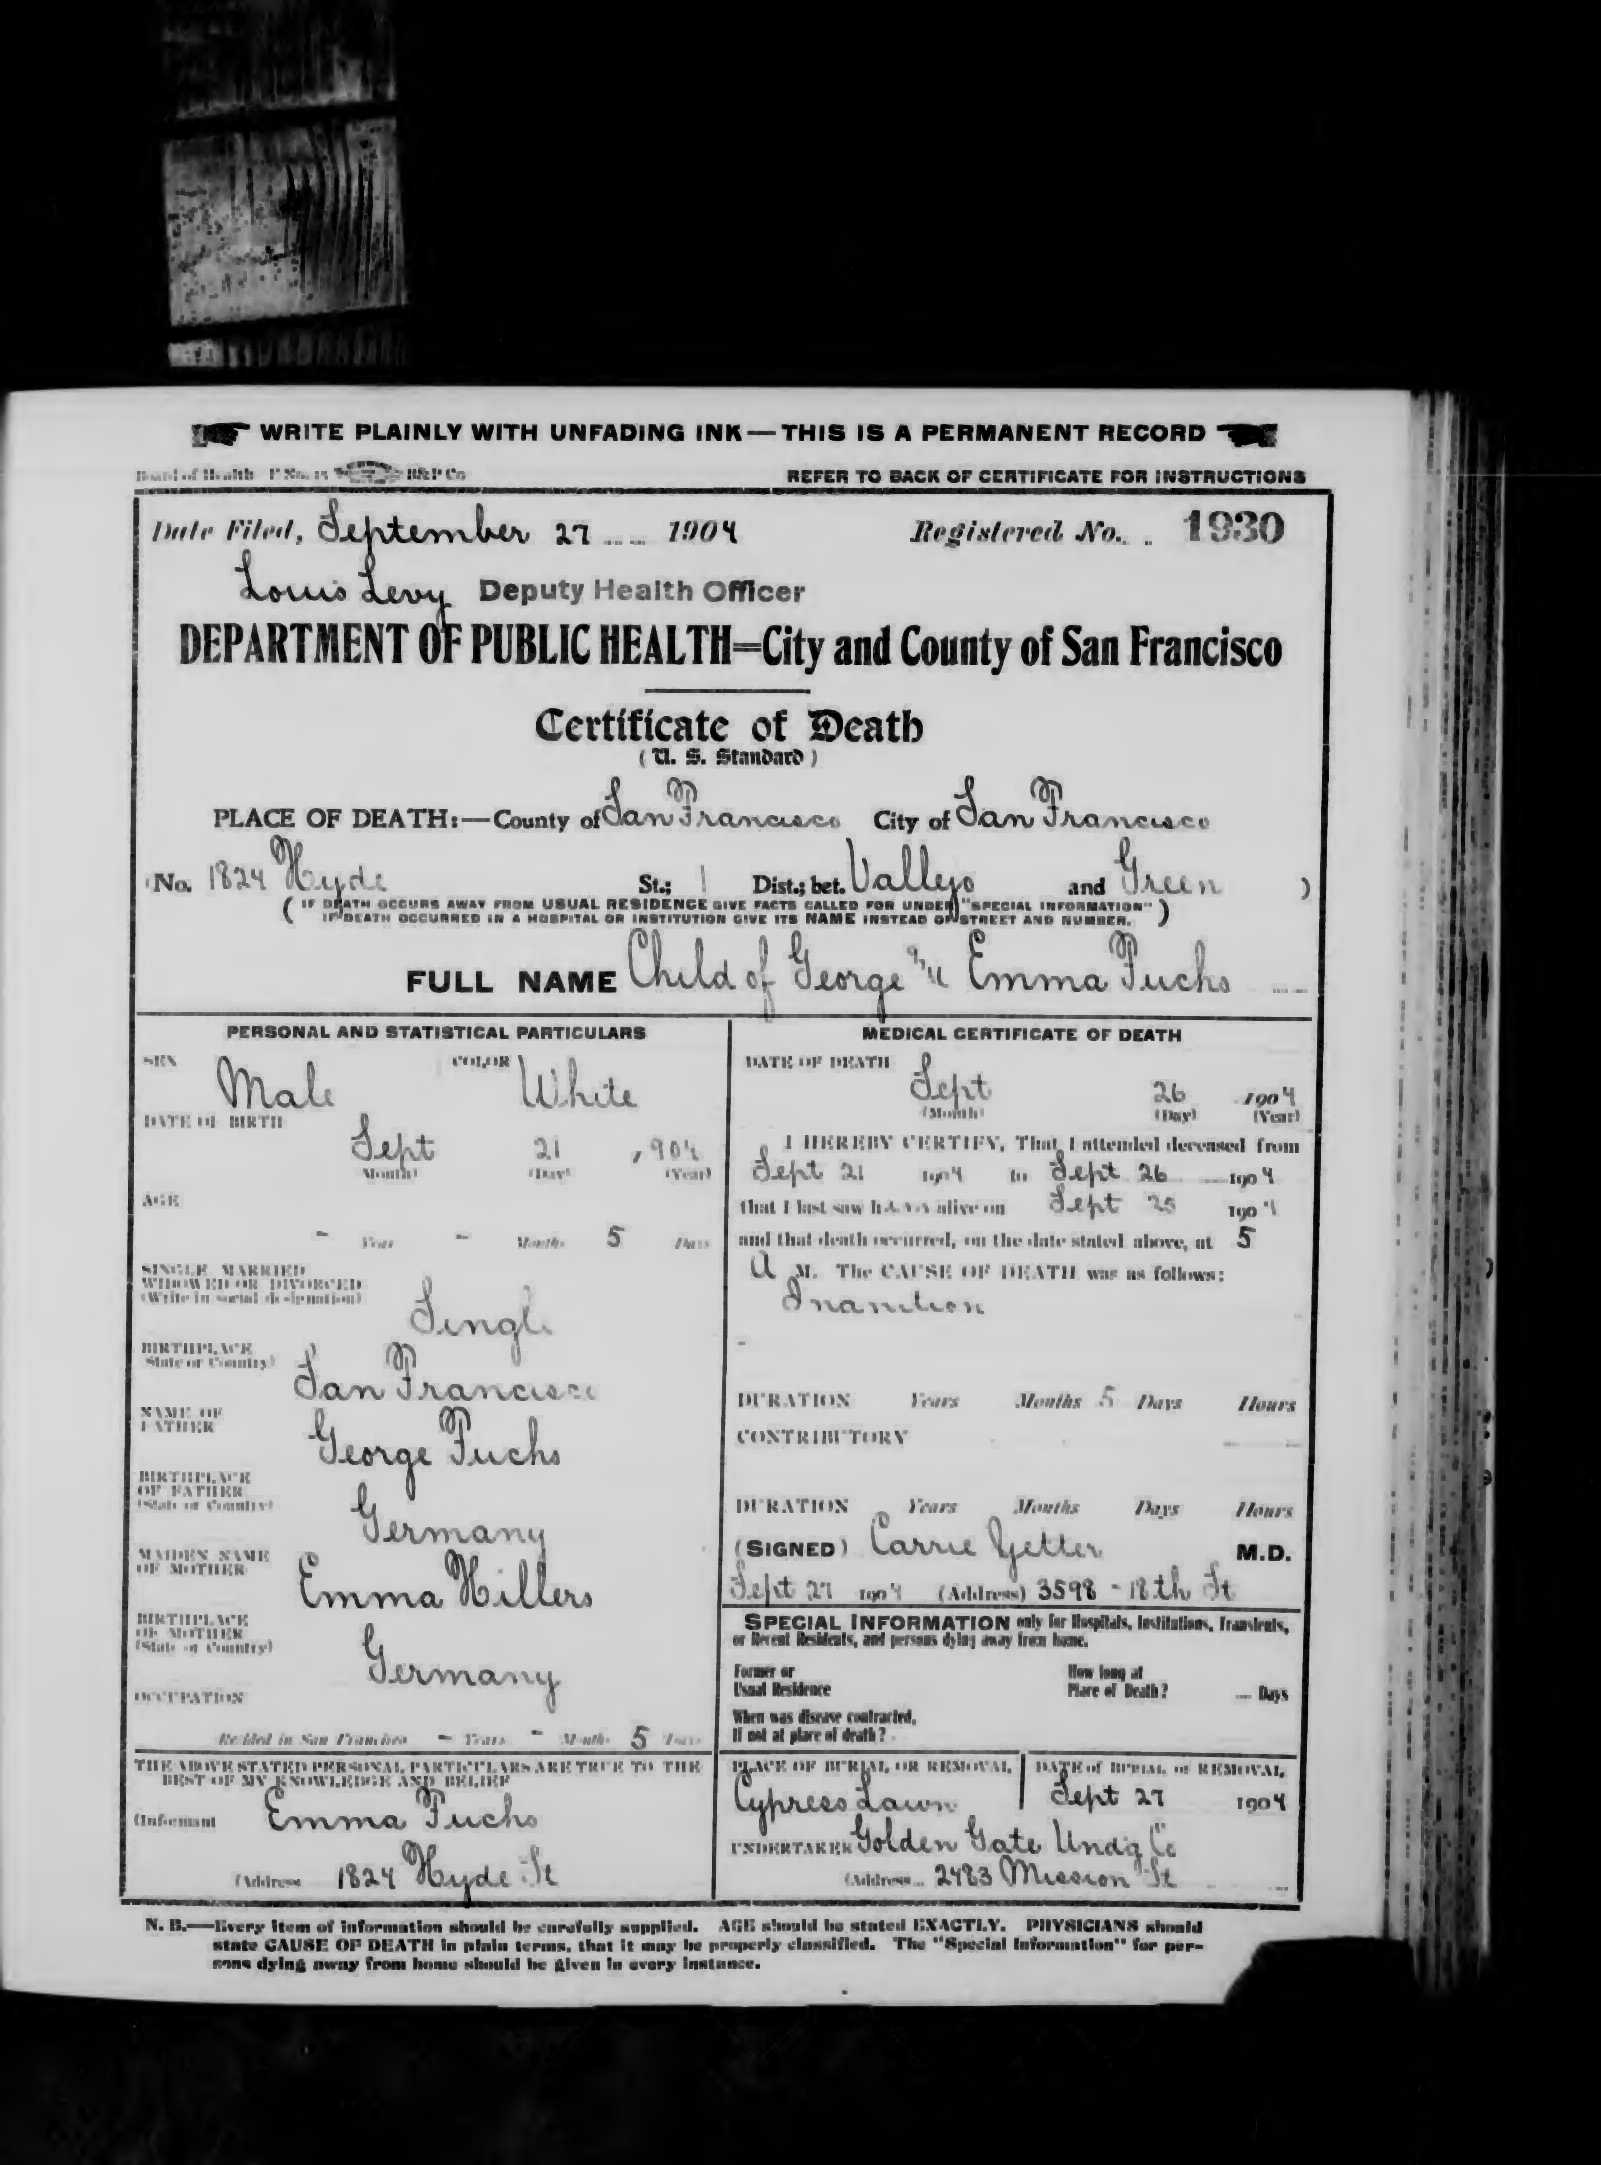 WRITE PLAINLY WITH UNFADING INK—THIS IS A PERMANENT RECORD
Board of Health F No. 15 H&P Co
REFER TO BACK OF CERTIFICATE FOR INSTRUCTIONS
Date Filed, September 27 1904 Registered No. 1930
Louis Levy Deputy Health Officer
DEPARTMENT OF PUBLIC HEALTH=City and County of San Francisco
Certificate of Death
( U. S. Standard )
PLACE OF DEATH:—County of San Francisco City of San Francisco
(No. 1824 Hyde St.; 1 Dist.; bet. Vallejo and Green )
( IF DEATH OCCURS AWAY FROM USUAL RESIDENCE GIVE FACTS CALLED FOR UNDER "SPECIAL INFORMATION" )
IF DEATH OCCURRED IN A HOSPITAL OR INSTITUTION GIVE ITS NAME INSTEAD OF STREET AND NUMBER.
FULL NAME Child of George & Emma Fuchs
PERSONAL AND STATISTICAL PARTICULARS
SEX Male COLOR White
DATE OF BIRTH
Sept 21 , 904
(Month) (Day) (Year)
AGE
- Years - Months 5 Days
SINGLE, MARRIED
WIDOWED OR DIVORCED
(Write in social designation)
Single
BIRTHPLACE
(State or Country)
San Francisco
NAME OF
FATHER
George Fuchs
BIRTHPLACE
OF FATHER
(State or Country)
Germany
MAIDEN NAME
OF MOTHER
Emma Hillers
BIRTHPLACE
OF MOTHER
(State or Country)
Germany
OCCUPATION
Resided in San Francisco - Years - Months 5 Days
THE ABOVE STATED PERSONAL PARTICULARS ARE TRUE TO THE
BEST OF MY KNOWLEDGE AND BELIEF
(Informant Emma Fuchs
(Address 1824 Hyde St
MEDICAL CERTIFICATE OF DEATH
DATE OF DEATH
Sept 26 1904
(Month) (Day) (Year)
I HEREBY CERTIFY, That I attended deceased from
Sept 21 1904 to Sept 26 1904
that I last saw him alive on Sept 25 1904
and that death occurred, on the date stated above, at 5
A M. The CAUSE OF DEATH was as follows:
Inanition
DURATION Years Months 5 Days Hours
CONTRIBUTORY
DURATION Years Months Days Hours
(SIGNED) Carrie Getter M.D.
Sept 27 1904 (Address) 3598 - 18th St
SPECIAL INFORMATION only for Hospitals, Institutions, Transients,
or Recent Residents, and persons dying away from home.
Former or
Usual Residence
How long at
Place of Death? Days
When was disease contracted,
If not at place of death?
PLACE OF BURIAL OR REMOVAL
Cypress Lawn
DATE of BURIAL or REMOVAL
Sept 27 1904
UNDERTAKER Golden Gate Und'g Co
(Address 2483 Mission St
N. B.—Every item of information should be carefully supplied. AGE should be stated EXACTLY. PHYSICIANS should
state CAUSE OF DEATH in plain terms, that it may be properly classified. The "Special Information" for per-
sons dying away from home should be given in every instance.